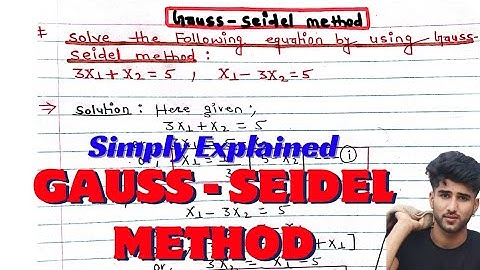 Gauss-seidel method
* solve the Following equation by using Gauss-
seidel method:
3x₁+x₂=5 , x₁-3x₂=5
⇒ solution: Here given;,
3x₁+x₂=5
Simply Explained
GAUSS - SEIDEL
METHOD
x₁-3x₂=5
+x₁]
or, 3x₂=x₁-5